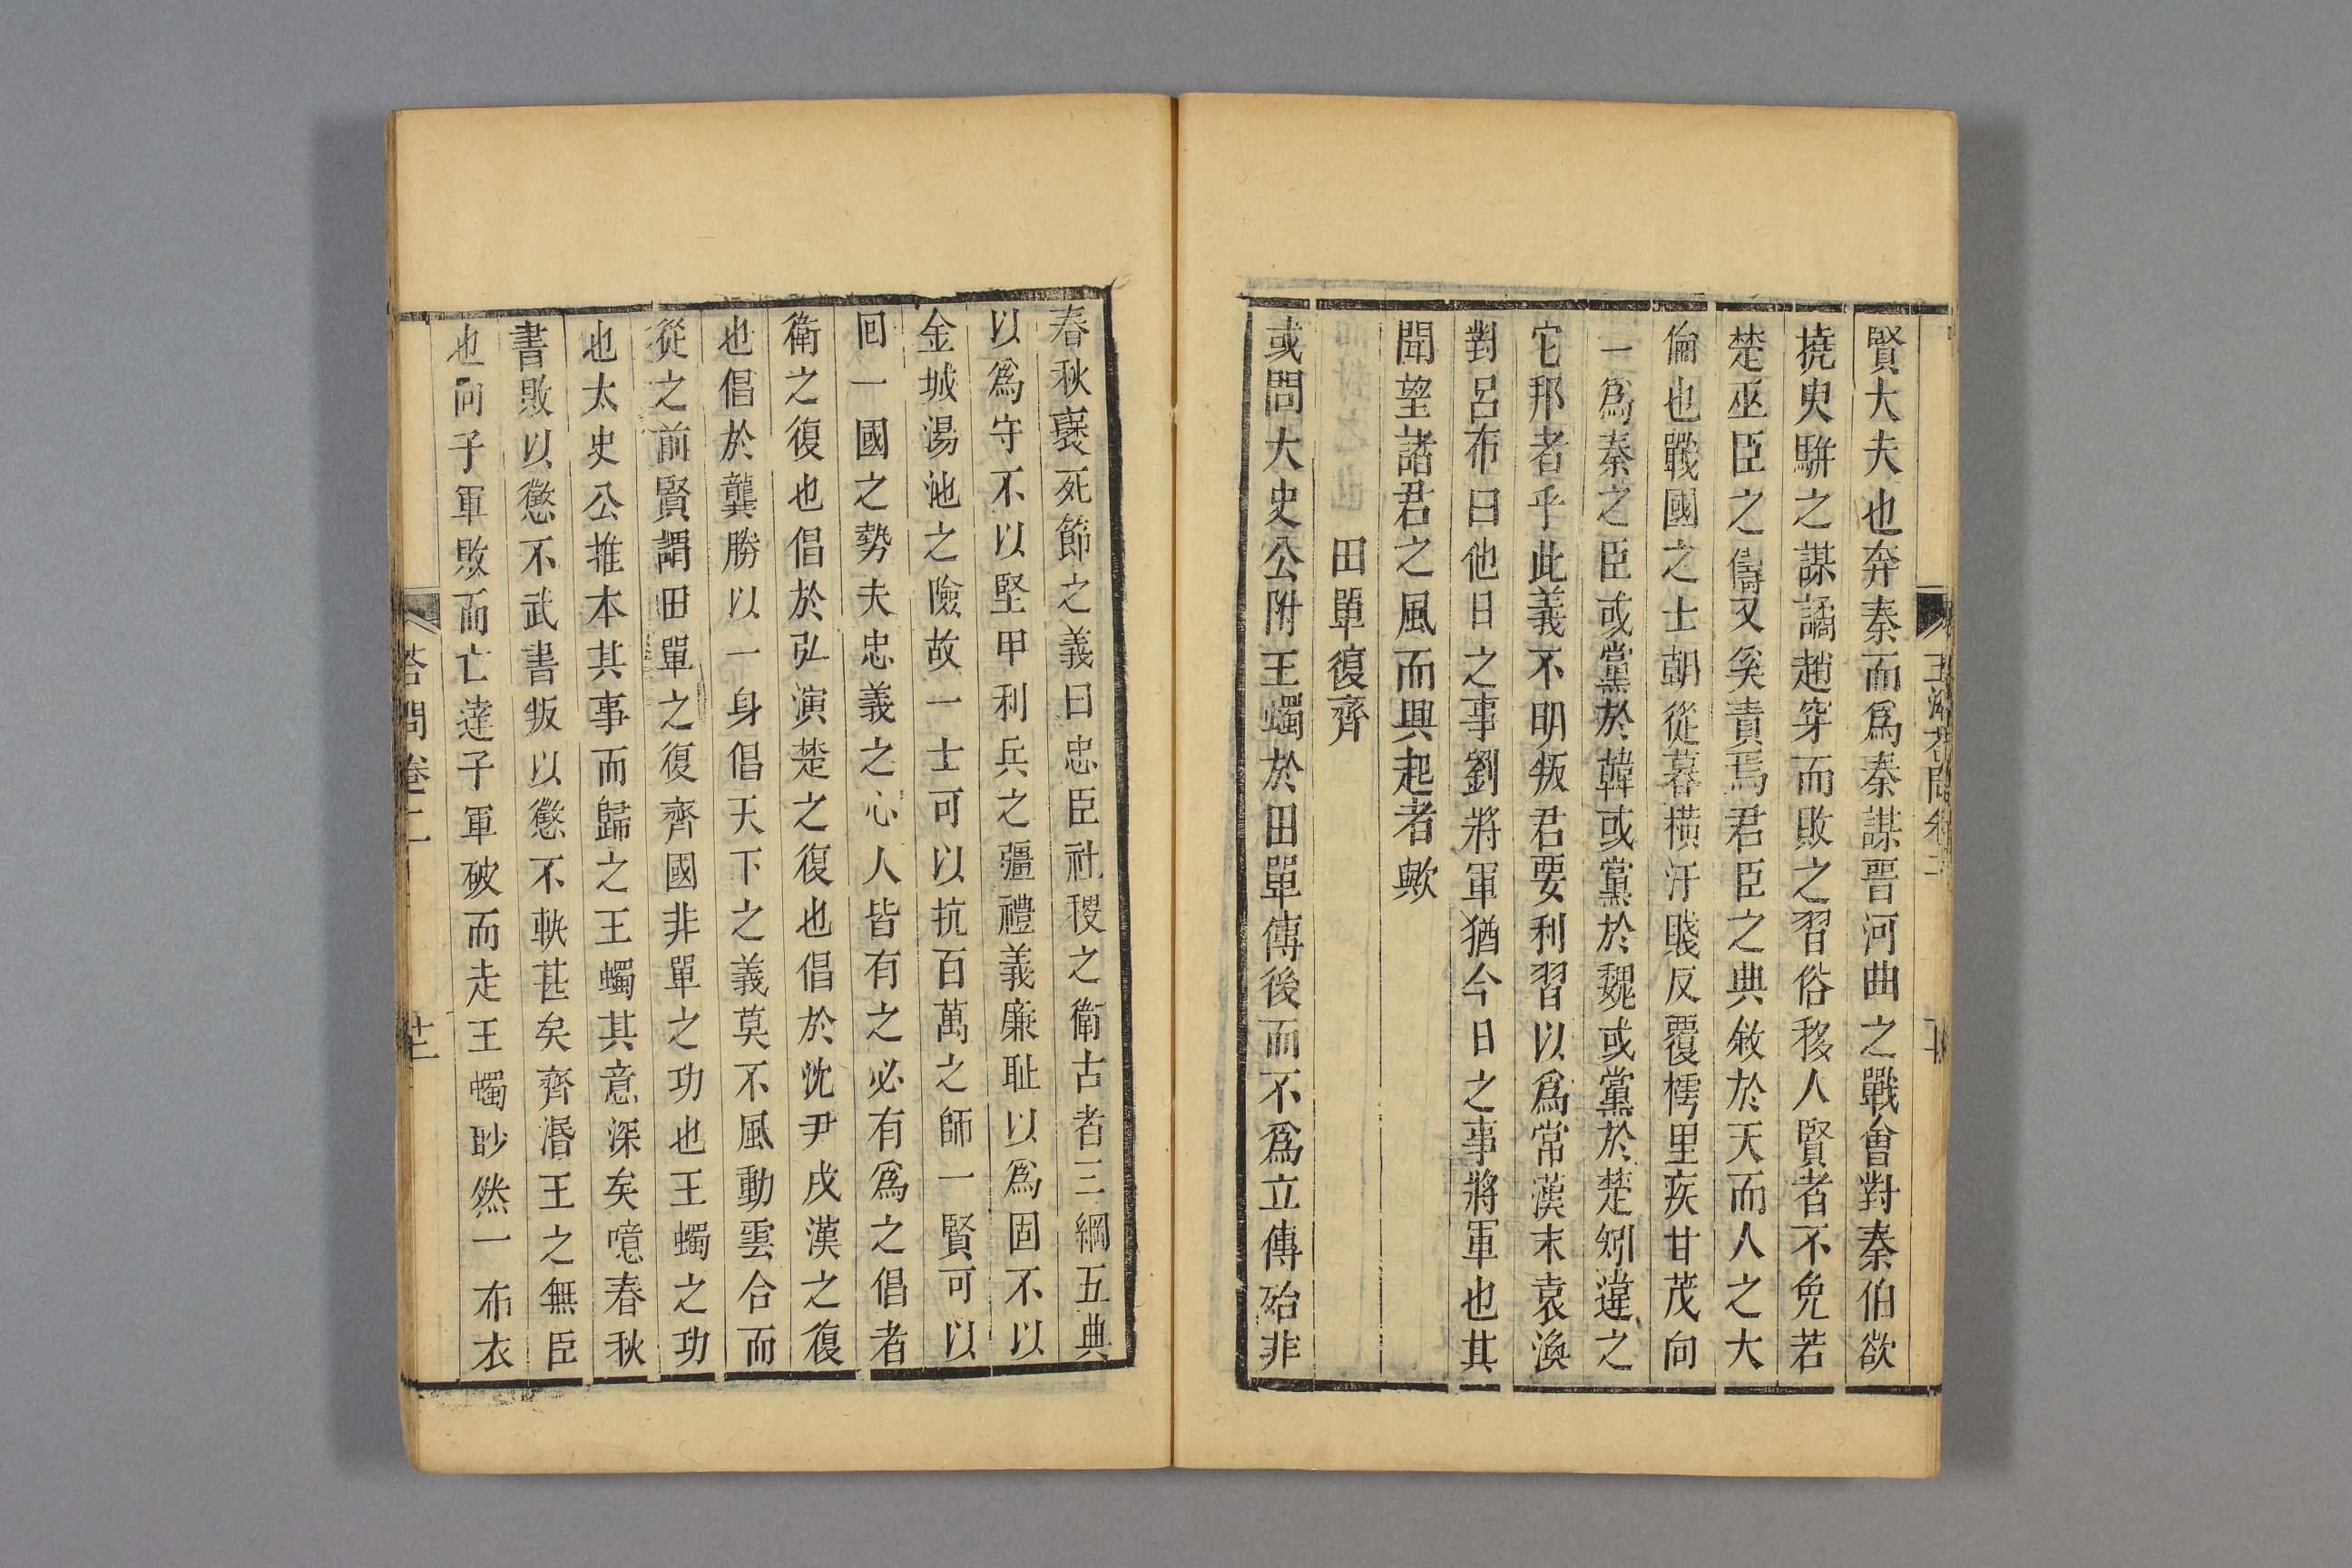 賢大夫也奔秦而爲秦謀晉河曲之戰會對秦伯欲
撓臾騈之謀譎趙穿而敗之習俗移人賢者不免若
楚巫臣之儔又奚責焉君臣之典敘於天而人之大
倫也戰國之士朝從暮橫汙賤反覆樗里疾甘茂向
一爲秦之臣或黨於韓或黨於魏或黨於楚矧違之
它邦者乎此義不明叛君要利習以爲常漢末袁渙
對呂布曰他日之事劉將軍猶今日之事將軍也其
聞望諸君之風而興起者歟
田單復齊
或問大史公附王蠋於田單傳後而不爲立傳殆非
春秋褒死節之義曰忠臣社稷之衛古者三綱五典
以爲守不以堅甲利兵之彊禮義廉耻以爲固不以
金城湯池之險故一士可以抗百萬之師一賢可以
囘一國之勢夫忠義之心人皆有之必有爲之倡者
衛之復也倡於弘演楚之復也倡於沈尹戌漢之復
也倡於龔勝以一身倡天下之義莫不風動雲合而
從之前賢謂田單之復齊國非單之功也王蠋之功
也太史公推本其事而歸之王蠋其意深矣噫春秋
書敗以懲不武書叛以懲不軼甚矣齊湣王之無臣
也向子軍敗而亡達子軍破而走王蠋眇然一布衣
荅問卷二